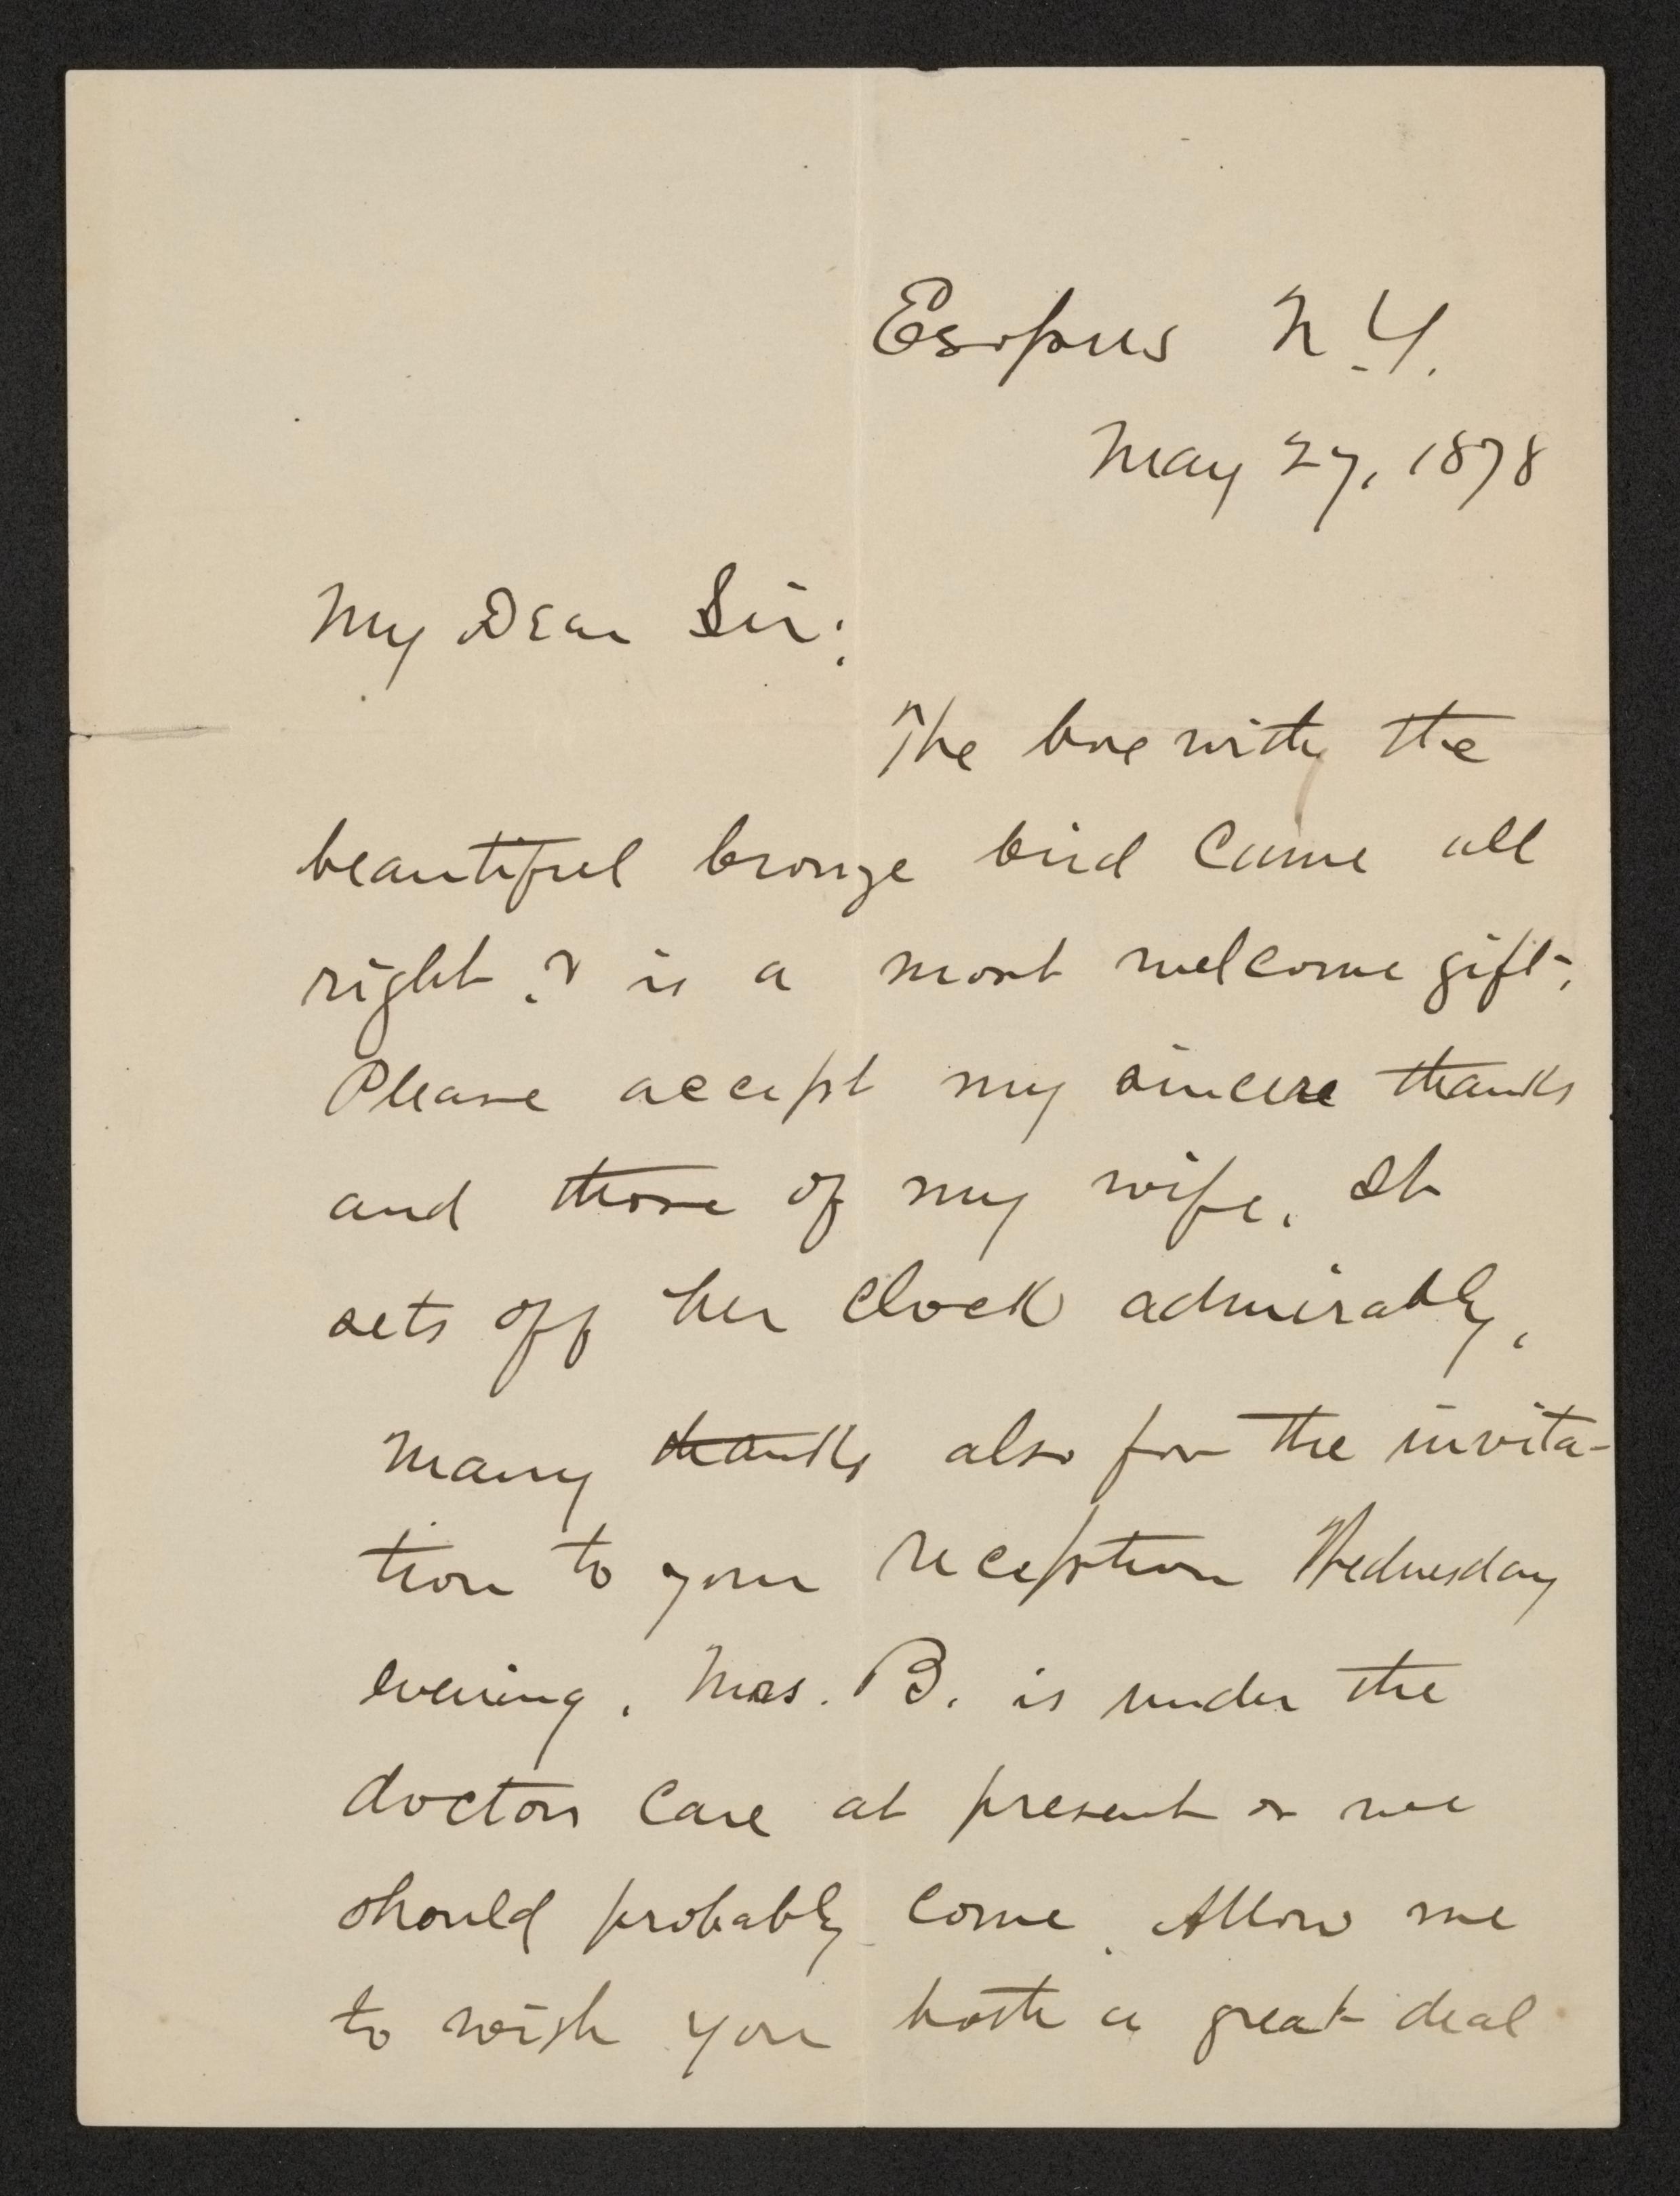 Esopus N.Y.
May 27, 1878
My Dear Sir:
The box with the
beautiful bronze bird came all
right, & is a most welcome gift.
Please accept my sincere thanks
and those of my wife. It
sets off her clock admirably.
Many thanks also for the invita-
tion to your reception Wednesday
evening. Mrs. B. is under the
doctors care at present or we
should probably come. Allow me
to wish you both a great deal